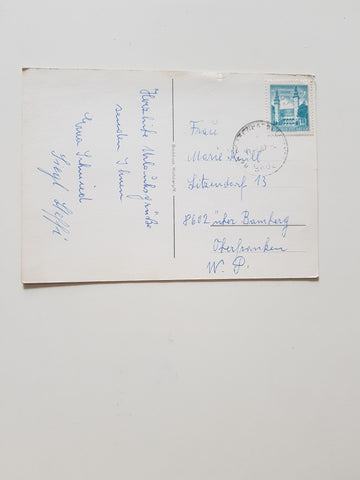 Herzliche Urlaubsgrüße
senden Ihnen
Erna Schmied
Siegl Steffi
Frau
Marie
Litzendorf 13
8602 über Bamberg
Oberfranken
W. D.